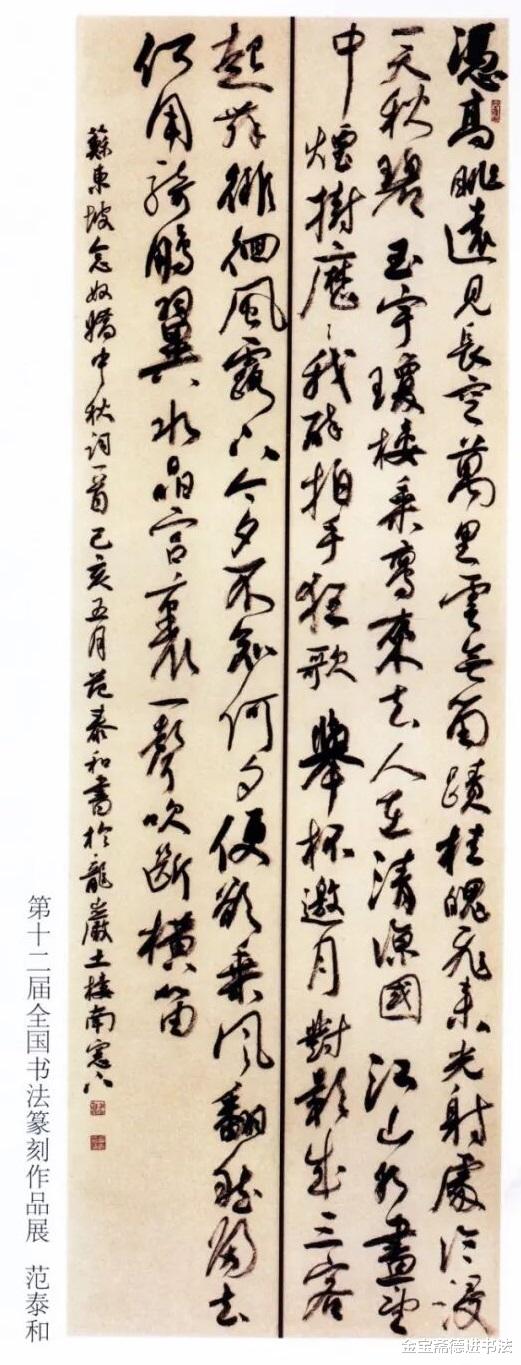 憑高眺遠見長空萬里雲無留蹟桂魄飛來光射處冷浸
一天秋碧玉宇瓊樓乘鸞來去人在清涼國江山如畫望
中煙樹歷〻我醉拍手狂歌舉杯邀月對影成三客
起舞徘徊風露下今夕不知何夕便欲乘風翻然歸去
何用騎鵬翼水晶宮裏一聲吹斷橫笛
蘇東坡念奴嬌中秋詞一首己亥五月范泰和書於龍巖土樓南窗下
第十二届全国书法篆刻作品展 范泰和
金宝斋德进书法